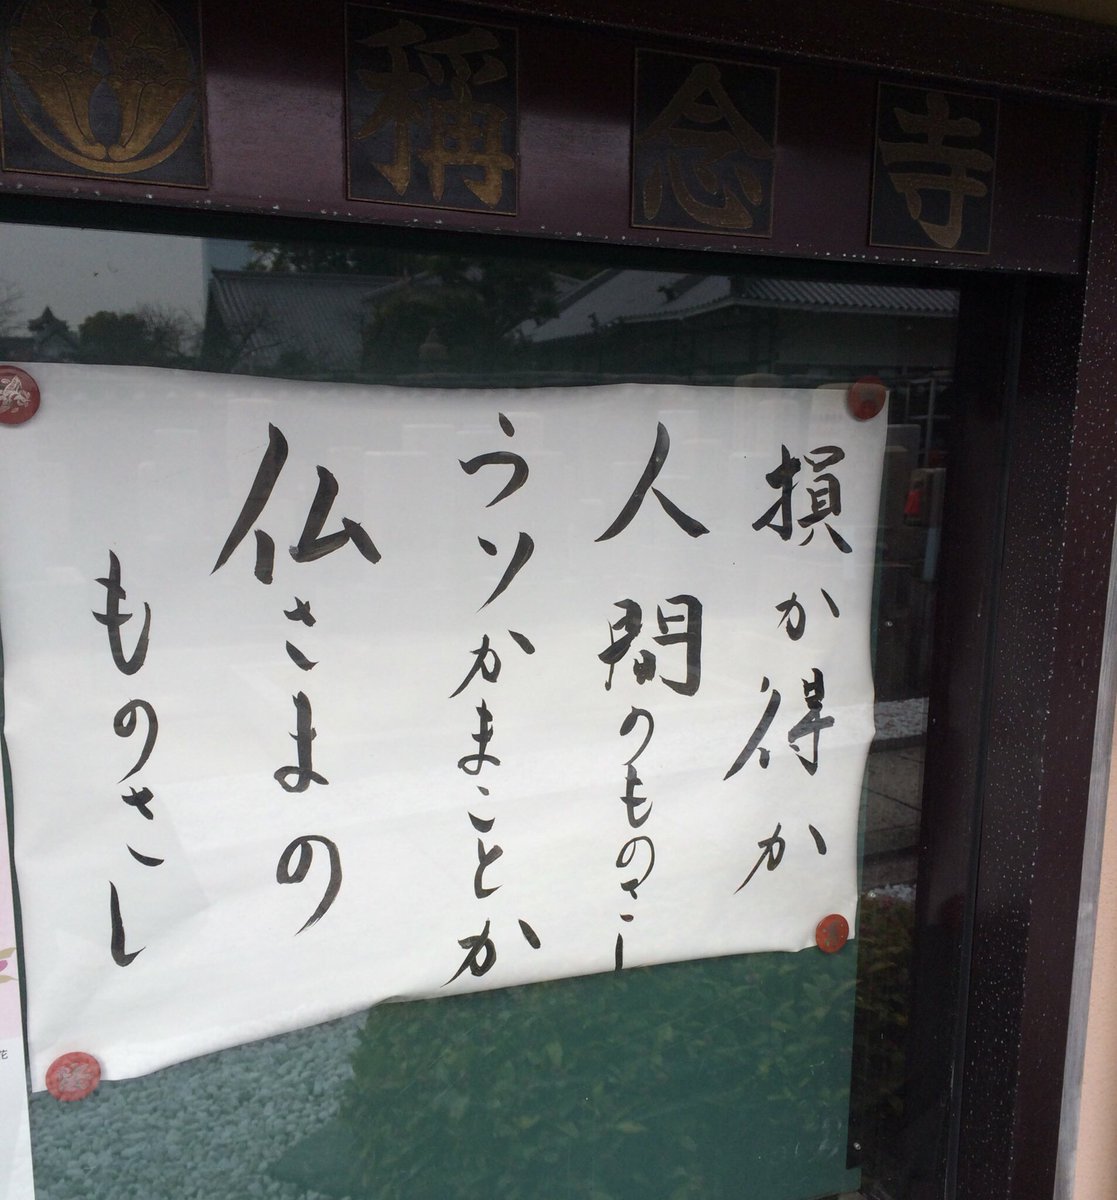 稱念寺
損か得か
人間のものさし
うソかまことか
仏さまの
ものさし
花